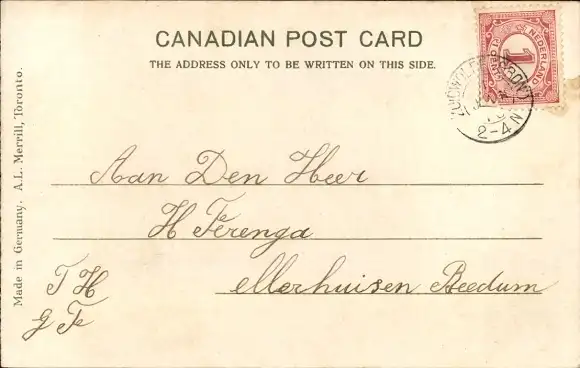 CANADIAN POST CARD
THE ADDRESS ONLY TO BE WRITTEN ON THIS SIDE.
NEDERLAND
1
CENT
2-4 N
Made in Germany. A.L. Merrill, Toronto.
Aan Den Heer
H Ferenga
ellerhuisen Beedum
T H
J Fe